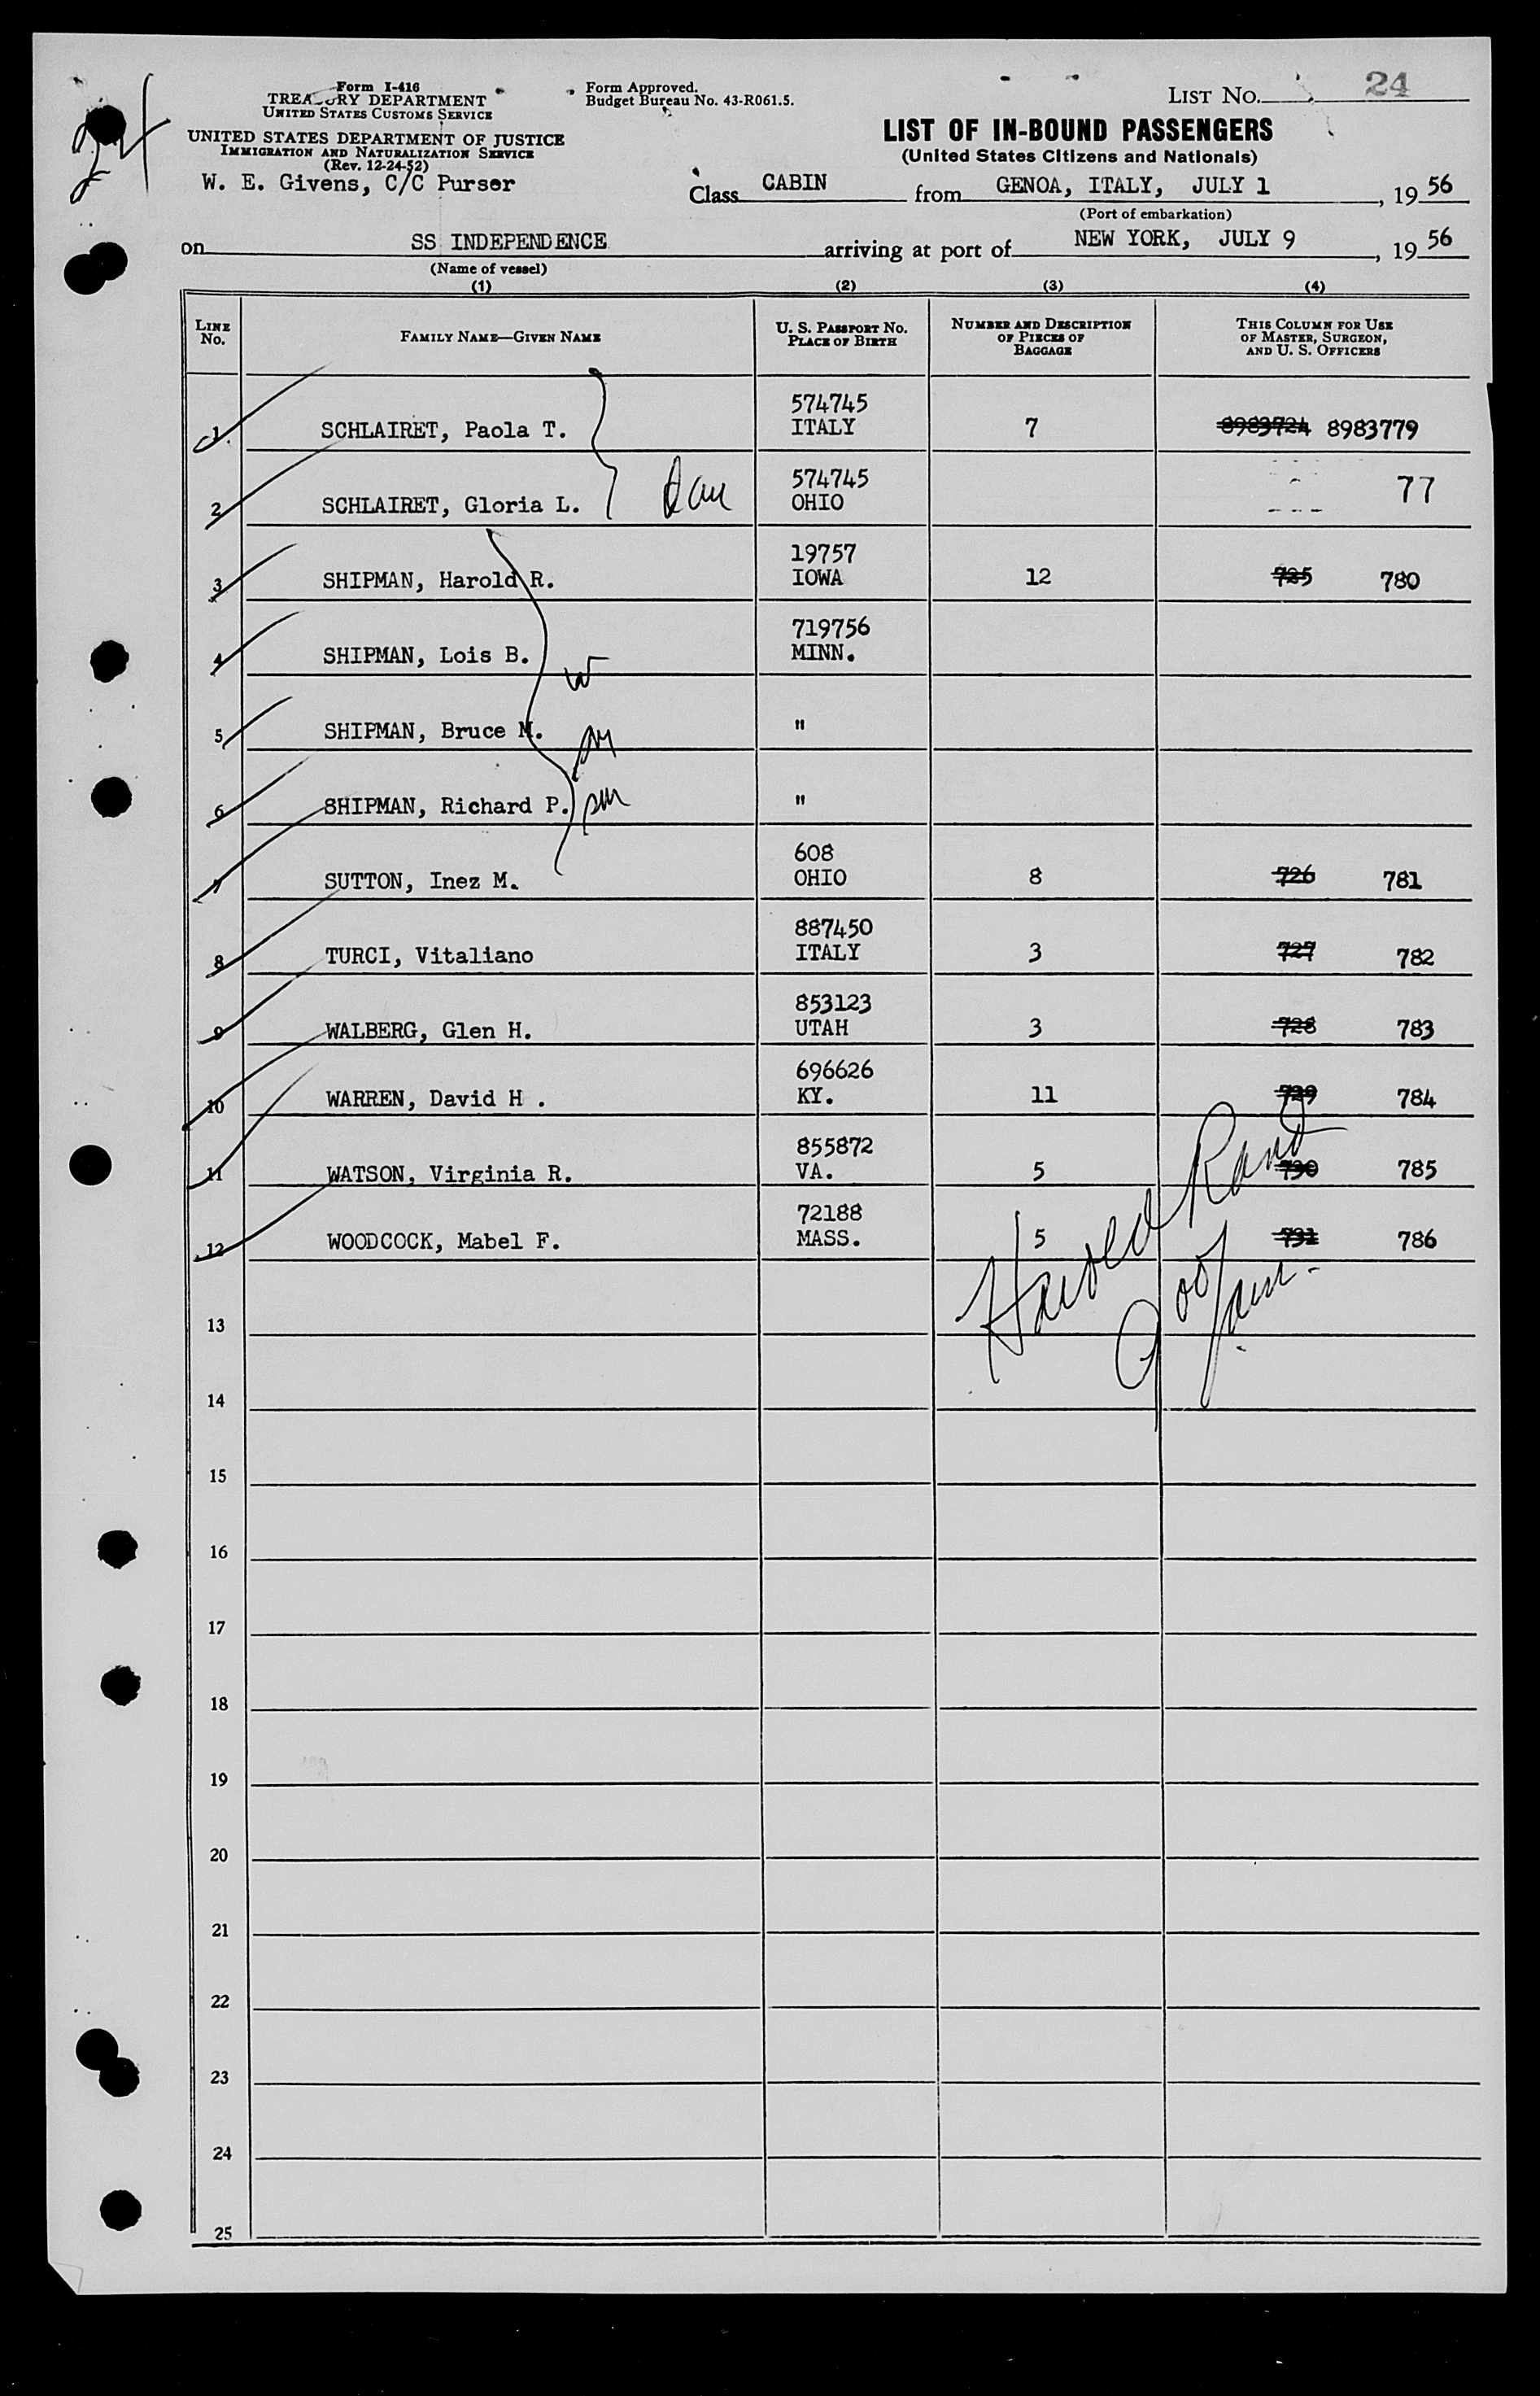 24
Form I-416
TREASURY DEPARTMENT
UNITED STATES CUSTOMS SERVICE
Form Approved.
Budget Bureau No. 43-R061.5.
LIST NO. 24
UNITED STATES DEPARTMENT OF JUSTICE
IMMIGRATION AND NATURALIZATION SERVICE
(Rev. 12-24-52)
W. E. Givens, C/C Purser
LIST OF IN-BOUND PASSENGERS
(United States Citizens and Nationals)
Class CABIN from GENOA, ITALY, JULY 1, 1956
(Port of embarkation)
on SS INDEPENDENCE arriving at port of NEW YORK, JULY 9, 1956
(Name of vessel)
(1) (2) (3) (4)
LINE NO. FAMILY NAME—GIVEN NAME U. S. PASSPORT NO. PLACE OF BIRTH NUMBER AND DESCRIPTION OF PIECES OF BAGGAGE THIS COLUMN FOR USE OF MASTER, SURGEON, AND U. S. OFFICERS
574745
1 SCHLAIRET, Paola T. ITALY 7 8983724 8983779
574745 77
2 SCHLAIRET, Gloria L. dau OHIO
19757
3 SHIPMAN, Harold R. IOWA 12 725 780
719756
4 SHIPMAN, Lois B. MINN.
w
5 SHIPMAN, Bruce M. "
6 SHIPMAN, Richard P. "
608
7 SUTTON, Inez M. OHIO 8 726 781
887450
8 TURCI, Vitaliano ITALY 3 727 782
853123
9 WALBERG, Glen H. UTAH 3 728 783
696626
10 WARREN, David H . KY. 11 729 784
855872
11 WATSON, Virginia R. VA. 5 730 785
72188
12 WOODCOCK, Mabel F. MASS. 5 731 786
Harold Rand
900/am.
13
14
15
16
17
18
19
20
21
22
23
24
25